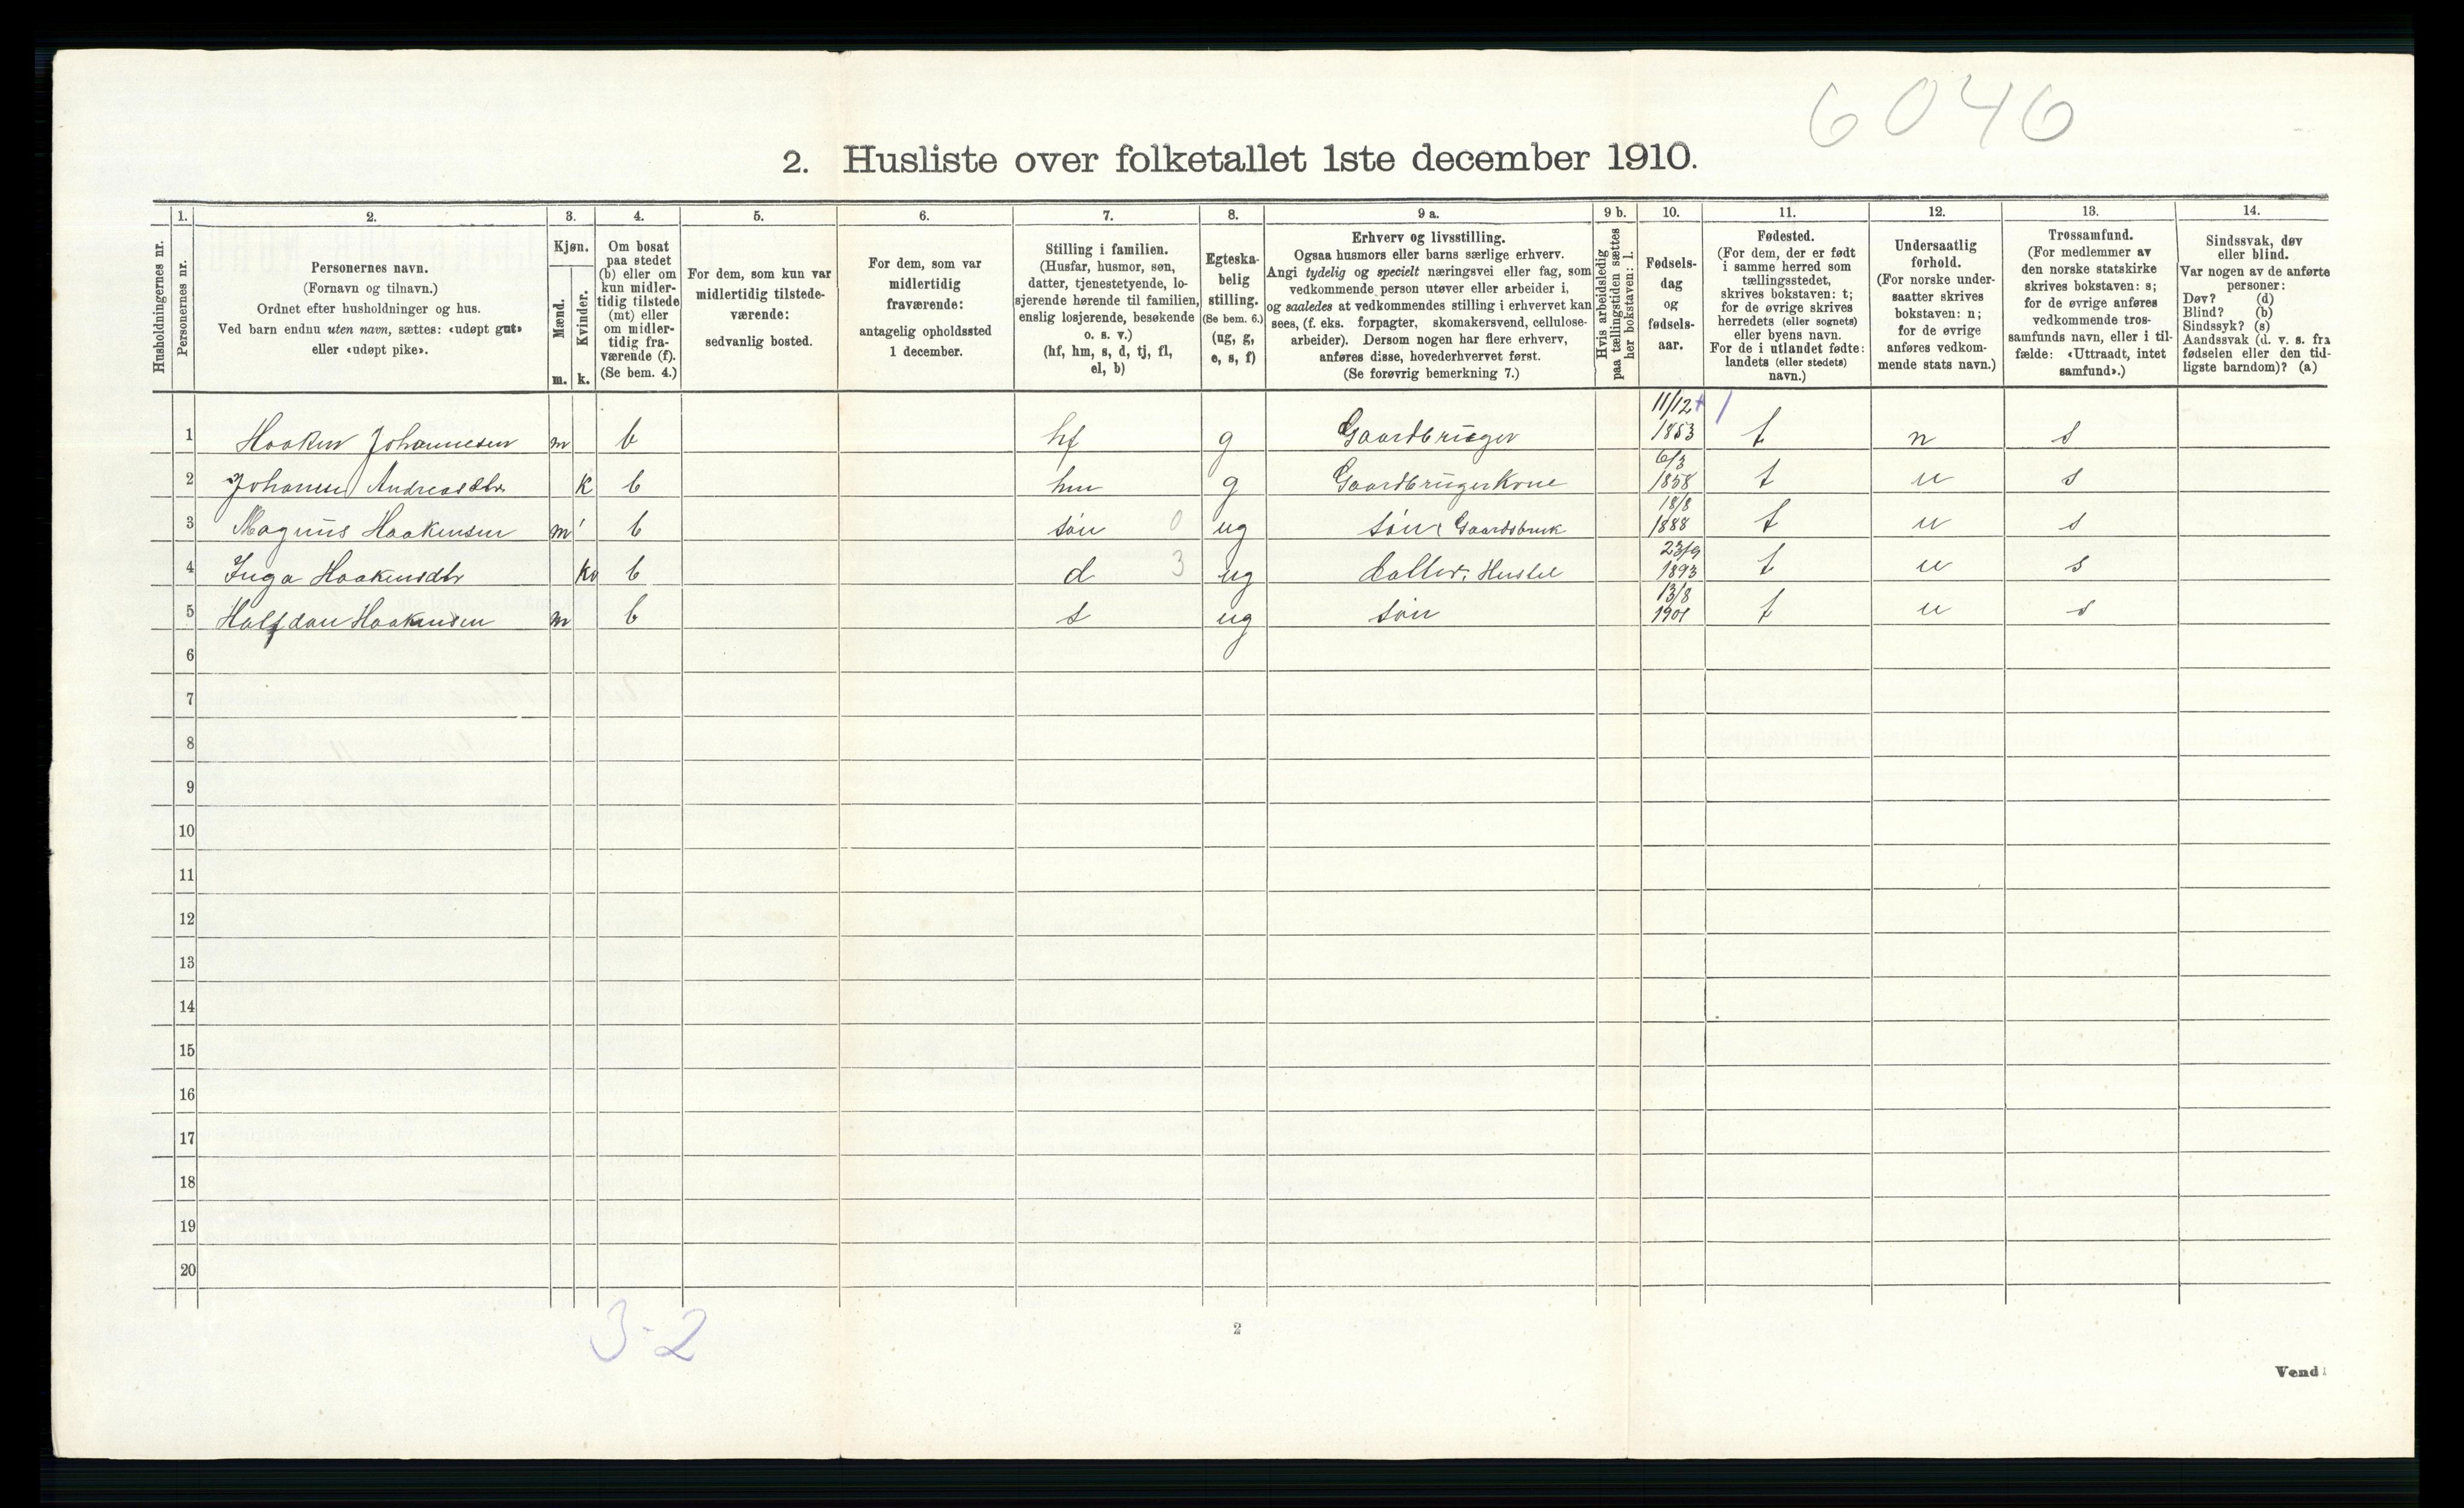 6046
2. Husliste over folketallet 1ste december 1910.
1. 2. 3. 4. 5. 6. 7. 8. 9 a. 9 b. 10. 11. 12. 13. 14.
Husholdningernes nr.
Personernes nr.
Personernes navn.
(Fornavn og tilnavn.)
Ordnet efter husholdninger og hus.
Ved barn endnu uten navn, sættes: «udøpt gut»
eller «udøpt pike».
Kjøn.
Mænd.
Kvinder.
m. k.
Om bosat
paa stedet
(b) eller om
kun midler-
tidig tilstede
(mt) eller
om midler-
tidig fra-
værende (f).
(Se bem. 4.)
For dem, som kun var
midlertidig tilstede-
værende:
sedvanlig bosted.
For dem, som var
midlertidig
fraværende:
antagelig opholdssted
1 december.
Stilling i familien.
(Husfar, husmor, søn,
datter, tjenestetyende, lo-
sjerende hørende til familien,
enslig losjerende, besøkende
o. s. v.)
(hf, hm, s, d, tj, fl,
el, b)
Egteska-
belig
stilling.
(Se bem. 6.)
(ug, g,
e, s, f)
Erhverv og livsstilling.
Ogsaa husmors eller barns særlige erhverv.
Angi tydelig og specielt næringsvei eller fag, som
vedkommende person utøver eller arbeider i,
og saaledes at vedkommendes stilling i erhvervet kan
sees, (f. eks. forpagter, skomakersvend, cellulose-
arbeider). Dersom nogen har flere erhverv,
anføres disse, hovederhvervet først.
(Se forøvrig bemerkning 7.)
Hvis arbeidsledig
paa tællingstiden sættes
her bokstaven: l.
Fødsels-
dag
og
fødsels-
aar.
Fødested.
(For dem, der er født
i samme herred som
tællingsstedet,
skrives bokstaven: t;
for de øvrige skrives
herredets (eller sognets)
eller byens navn.
For de i utlandet fødte:
landets (eller stedets)
navn.)
Undersaatlig
forhold.
(For norske under-
saatter skrives
bokstaven: n;
for de øvrige
anføres vedkom-
mende stats navn.)
Trossamfund.
(For medlemmer av
den norske statskirke
skrives bokstaven: s;
for de øvrige anføres
vedkommende tros-
samfunds navn, eller i til-
fælde: «Uttraadt, intet
samfund».)
Sindssvak, døv
eller blind.
Var nogen av de anførte
personer:
Døv? (d)
Blind? (b)
Sindssyk? (s)
Aandssvak (d. v. s. fra
fødselen eller den tid-
ligste barndom)? (a)
1 Haaken Johannesen m b hf g Gaardbruger 11/12 1853 t n s
2 Johanne Andreasdtr k b hm g Gaardbrugerkone 6/3 1858 t n s
3 Magnus Haakensen m b søn 0 ug søn Gaardsbruk 18/8 1888 t n s
4 Inga Haakensdtr k b d 3 ug datter Husstel 23/9 1893 t n s
5 Halfdan Haakensen m b s ug søn 13/8 1901 t n s
6
7
8
9
10
11
12
13
14
15
16
17
18
19
20
3-2
2
Vend!